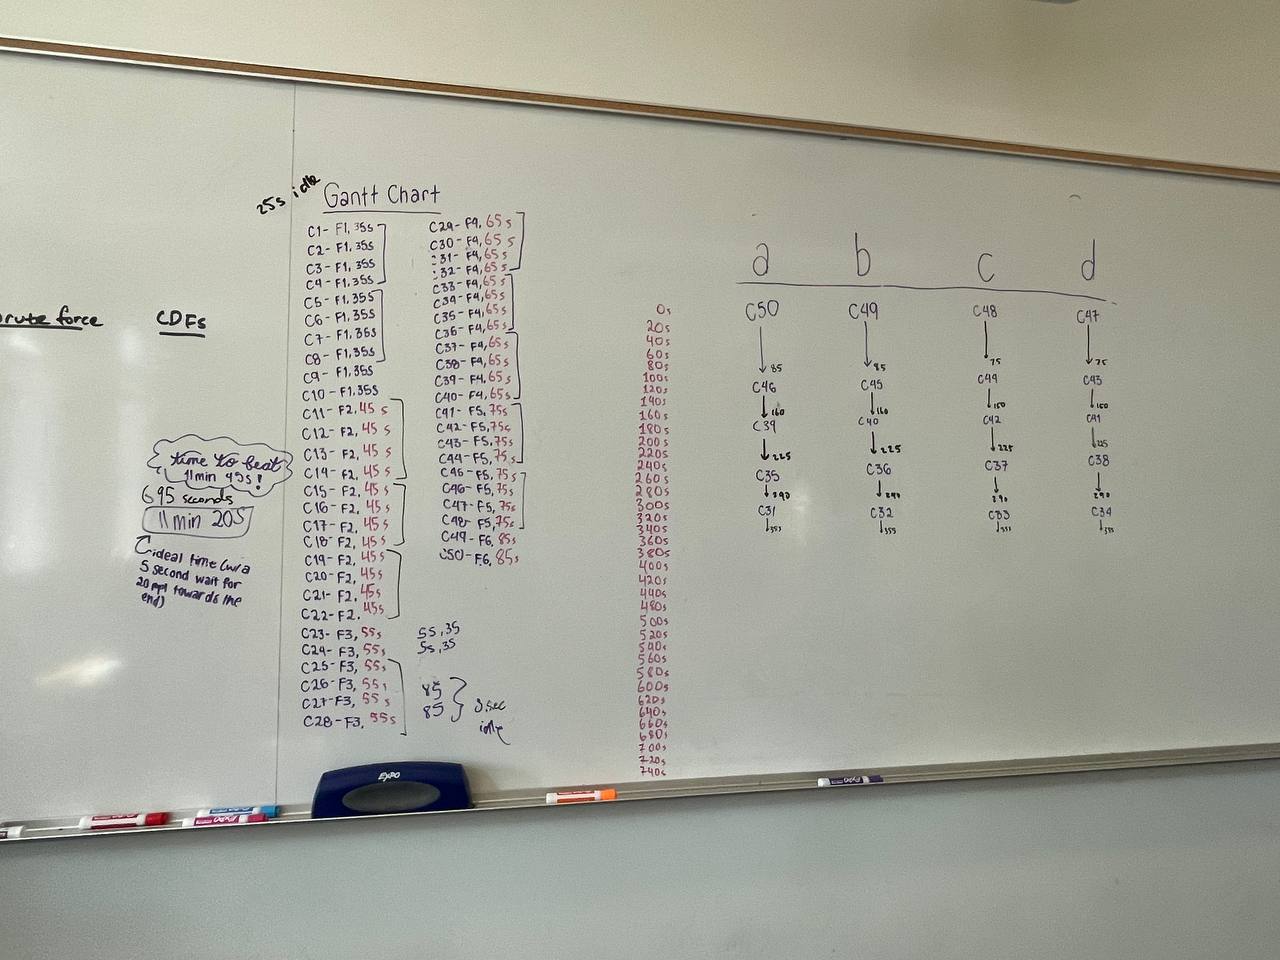 brute force
CDFs
time to beat
11min 45s!
695 seconds
11 min 20s
ideal time (w/a
5 second wait for
20 ppl towards the
end)
25s idle
Gantt Chart
C1- F1, 35s
C2- F1, 35s
C3- F1, 35s
C4- F1, 35s
C5- F1, 35s
C6- F1, 35s
C7- F1, 35s
C8- F1, 35s
C9- F1, 35s
C10- F1, 35s
C11- F2, 45s
C12- F2, 45s
C13- F2, 45s
C14- F2, 45s
C15- F2, 45s
C16- F2, 45s
C17- F2, 45s
C18- F2, 45s
C19- F2, 45s
C20- F2, 45s
C21- F2, 45s
C22- F2, 45s
C23- F3, 55s
C24- F3, 55s
C25- F3, 55s
C26- F3, 55s
C27- F3, 55s
C28- F3, 55s
C29- F4, 65s
C30- F4, 65s
C31- F4, 65s
C32- F4, 65s
C33- F4, 65s
C34- F4, 65s
C35- F4, 65s
C36- F4, 65s
C37- F4, 65s
C38- F4, 65s
C39- F4, 65s
C40- F4, 65s
C41- F5, 75s
C42- F5, 75s
C43- F5, 75s
C44- F5, 75s
C45- F5, 75s
C46- F5, 75s
C47- F5, 75s
C48- F5, 75s
C49- F6, 85s
C50- F6, 85s
55, 35
55, 35
85
85
idle
EXPO
0s
20s
40s
60s
80s
100s
120s
140s
160s
180s
200s
220s
240s
260s
280s
300s
320s
340s
360s
380s
400s
420s
440s
480s
500s
520s
540s
560s
580s
600s
620s
640s
660s
680s
700s
720s
740s
a b c d
C50 C49 C48 C47
85 85 75 75
C46 C45 C44 C43
160 160 150 150
C39 C40 C42 C41
225 225 225 225
C35 C36 C37 C38
290 290 290 290
C31 C32 C33 C34
355 355 355 355